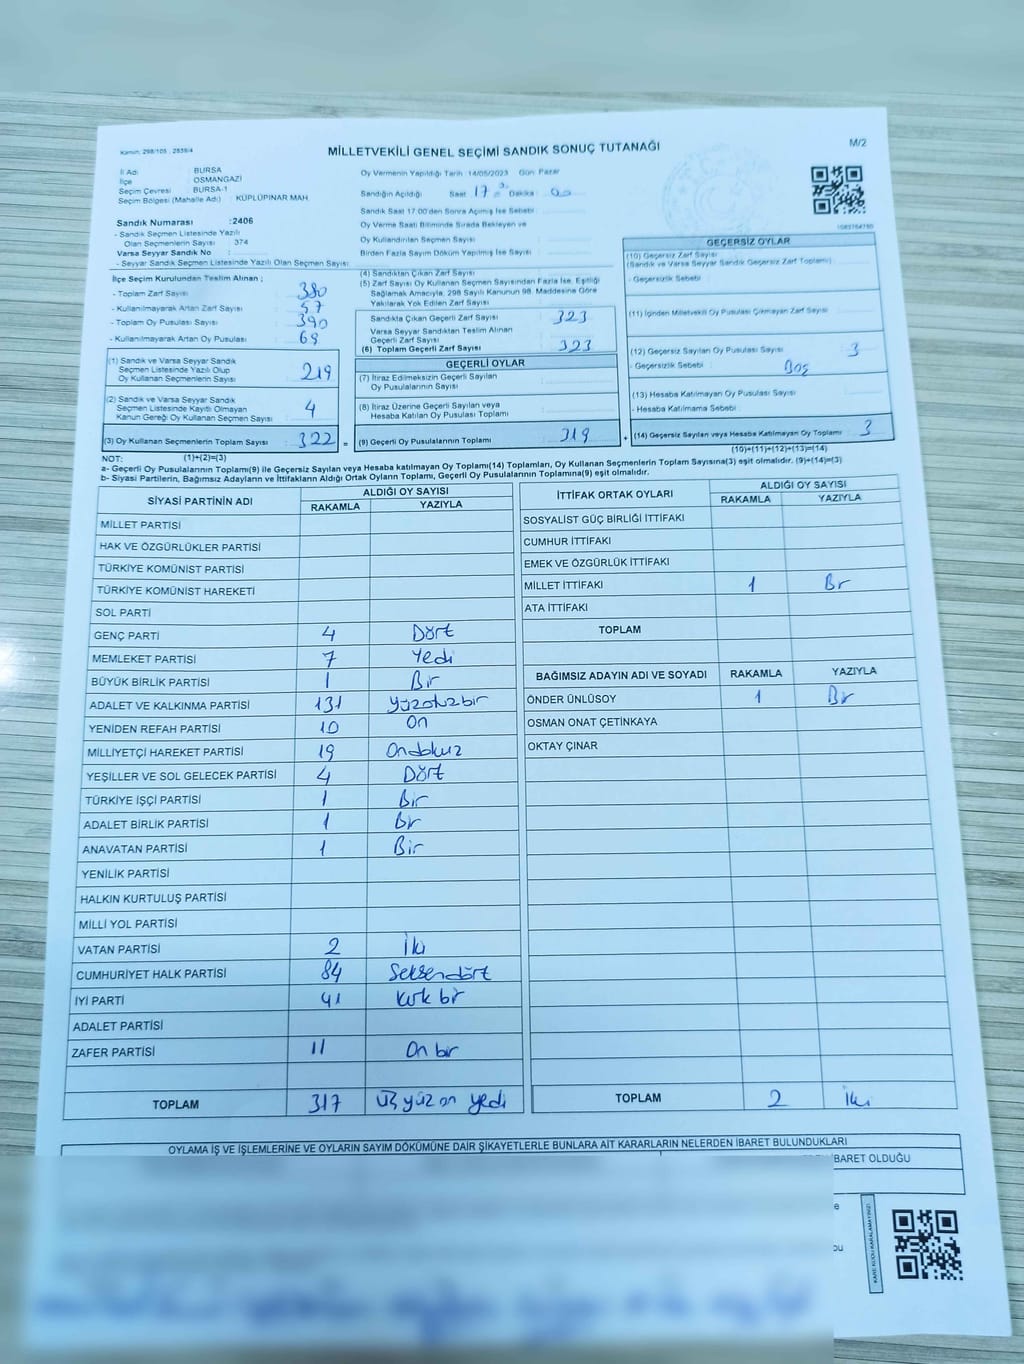 Kanun: 298/105 , 2839/4
MİLLETVEKİLİ GENEL SEÇİMİ SANDIK SONUÇ TUTANAĞI
M/2
İl Adı : BURSA
İlçe : OSMANGAZİ
Seçim Çevresi : BURSA-1
Seçim Bölgesi (Mahalle Adı) : KÜPLÜPINAR MAH.
Sandık Numarası : 2406
- Sandık Seçmen Listesinde Yazılı
Olan Seçmenlerin Sayısı : 374
Varsa Seyyar Sandık No :
- Seyyar Sandık Seçmen Listesinde Yazılı Olan Seçmen Sayısı:
Oy Vermenin Yapıldığı Tarih : 14/05/2023 Gün: Pazar
Sandığın Açıldığı Saat : 17 Dakika : 00
Sandık Saat 17:00'den Sonra Açılmış İse Sebebi :
Oy Verme Saati Bitiminde Sırada Bekleyen ve
Oy Kullandırılan Seçmen Sayısı
Birden Fazla Sayım Döküm Yapılmış İse Sayısı :
İlçe Seçim Kurulundan Teslim Alınan ;
- Toplam Zarf Sayısı : 380
- Kullanılmayarak Artan Zarf Sayısı : 57
- Toplam Oy Pusulası Sayısı : 390
- Kullanılmayarak Artan Oy Pusulası : 69
(1) Sandık ve Varsa Seyyar Sandık
Seçmen Listesinde Yazılı Olup
Oy Kullanan Seçmenlerin Sayısı : 219
(2) Sandık ve Varsa Seyyar Sandık
Seçmen Listesinde Kayıtlı Olmayan
Kanun Gereği Oy Kullanan Seçmen Sayısı : 4
(3) Oy Kullanan Seçmenlerin Toplam Sayısı : 322 =
(4) Sandıktan Çıkan Zarf Sayısı
(5) Zarf Sayısı Oy Kullanan Seçmen Sayısından Fazla İse, Eşitliği
Sağlamak Amacıyla, 298 Sayılı Kanunun 98. Maddesine Göre
Yakılarak Yok Edilen Zarf Sayısı :
Sandıkta Çıkan Geçerli Zarf Sayısı : 323
Varsa Seyyar Sandıktan Teslim Alınan
Geçerli Zarf Sayısı :
(6) Toplam Geçerli Zarf Sayısı : 323
GEÇERLİ OYLAR
(7) İtiraz Edilmeksizin Geçerli Sayılan
Oy Pusulalarının Sayısı :
(8) İtiraz Üzerine Geçerli Sayılan veya
Hesaba Katılan Oy Pusulası Toplamı :
(9) Geçerli Oy Pusulalarının Toplamı : 319 +
GEÇERSİZ OYLAR
(10) Geçersiz Zarf Sayısı
(Sandık ve Varsa Seyyar Sandık Geçersiz Zarf Toplamı) :
- Geçersizlik Sebebi :
(11) İçinden Milletvekili Oy Pusulası Çıkmayan Zarf Sayısı :
(12) Geçersiz Sayılan Oy Pusulası Sayısı : 3
- Geçersizlik Sebebi : Boş
(13) Hesaba Katılmayan Oy Pusulası Sayısı :
- Hesaba Katılmama Sebebi :
(14) Geçersiz Sayılan veya Hesaba Katılmayan Oy Toplamı : 3
NOT: (1)+(2)=(3) (10)+(11)+(12)+(13)=(14)
a- Geçerli Oy Pusulalarının Toplamı(9) ile Geçersiz Sayılan veya Hesaba katılmayan Oy Toplamı(14) Toplamları, Oy Kullanan Seçmenlerin Toplam Sayısına(3) eşit olmalıdır. (9)+(14)=(3)
b- Siyasi Partilerin, Bağımsız Adayların ve İttifakların Aldığı Ortak Oyların Toplamı, Geçerli Oy Pusulalarının Toplamına(9) eşit olmalıdır.
SİYASİ PARTİNİN ADI ALDIĞI OY SAYISI
RAKAMLA YAZIYLA
MİLLET PARTİSİ
HAK VE ÖZGÜRLÜKLER PARTİSİ
TÜRKİYE KOMÜNİST PARTİSİ
TÜRKİYE KOMÜNİST HAREKETİ
SOL PARTİ
GENÇ PARTİ 4 Dört
MEMLEKET PARTİSİ 7 Yedi
BÜYÜK BİRLİK PARTİSİ 1 Bir
ADALET VE KALKINMA PARTİSİ 131 Yüzotuzbir
YENİDEN REFAH PARTİSİ 10 On
MİLLİYETÇİ HAREKET PARTİSİ 19 Ondokuz
YEŞİLLER VE SOL GELECEK PARTİSİ 4 Dört
TÜRKİYE İŞÇİ PARTİSİ 1 Bir
ADALET BİRLİK PARTİSİ 1 Bir
ANAVATAN PARTİSİ 1 Bir
YENİLİK PARTİSİ
HALKIN KURTULUŞ PARTİSİ
MİLLİ YOL PARTİSİ
VATAN PARTİSİ 2 İki
CUMHURİYET HALK PARTİSİ 84 Seksendört
İYİ PARTİ 41 Kırk bir
ADALET PARTİSİ
ZAFER PARTİSİ 11 On bir
TOPLAM 317 Üç yüz on yedi
İTTİFAK ORTAK OYLARI ALDIĞI OY SAYISI
RAKAMLA YAZIYLA
SOSYALİST GÜÇ BİRLİĞİ İTTİFAKI
CUMHUR İTTİFAKI
EMEK VE ÖZGÜRLÜK İTTİFAKI
MİLLET İTTİFAKI 1 Bir
ATA İTTİFAKI
TOPLAM
BAĞIMSIZ ADAYIN ADI VE SOYADI RAKAMLA YAZIYLA
ÖNDER ÜNLÜSOY 1 Bir
OSMAN ONAT ÇETİNKAYA
OKTAY ÇINAR
TOPLAM 2 İki
OYLAMA İŞ VE İŞLEMLERİNE VE OYLARIN SAYIM DÖKÜMÜNE DAİR ŞİKAYETLERLE BUNLARA AİT KARARLARIN NELERDEN İBARET BULUNDUKLARI
İBARET OLDUĞU
KARE KODU KARALAMAYINIZ!